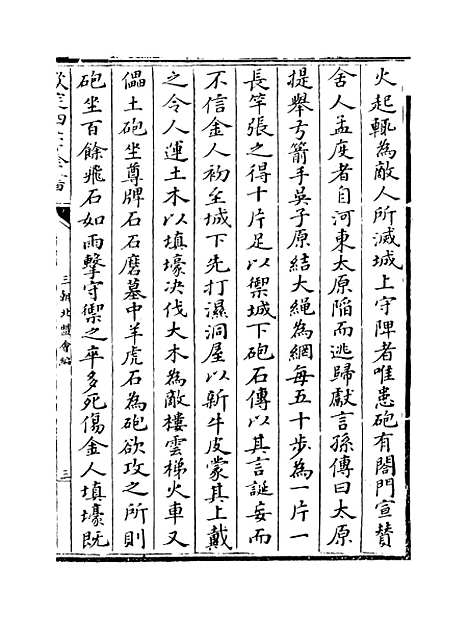 火起輒為敵人所滅城上守陴者唯患砲有閤門宣贊
舍人孟度者自河東太原陥而逃歸獻言孫傅曰太原
提舉弓箭手吳子原結大繩為網每五十步為一片一
長竿張之得十片足以禦城下砲石傅以其言誕妄而
不信金人初至城下先打濕洞屋以新牛皮蒙其上戴
之令人運土木以填壕决伐大木為敵樓雲梯火車又
儡土砲坐尊牌石石磨墓中羊虎石為砲欲攻之所則
砲坐百餘飛石如雨擊守禦之卒多死傷金人填壕既
欽定四庫全書
三朝北盟會編
三